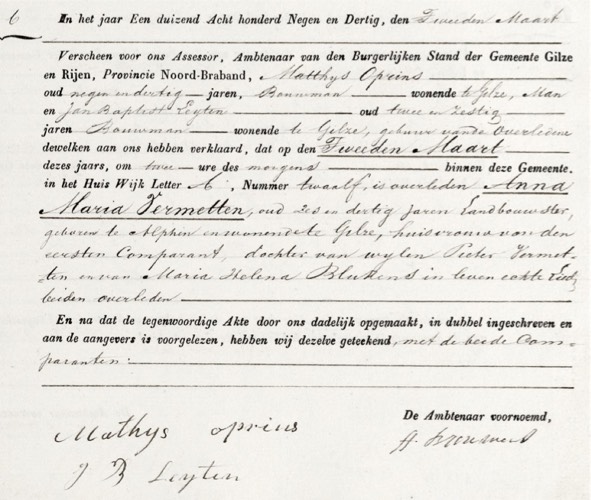 6
In het jaar Een duizend Acht honderd Negen en Dertig, den Tweeden Maart
Verscheen voor ons Assessor, Ambtenaar van den Burgerlijken Stand der Gemeente Gilze
en Rijen, Provincie Noord-Braband, Matthys Oprins
oud negen en dertig jaren, Bouwman wonende te Gilze, Man
en Jan Baptist Leyten oud twee en Zestig
jaren Bouwman wonende te Gilze, gebuur van de Overledene
dewelken aan ons hebben verklaard, dat op den Tweeden Maart
dezes jaars, om twee ure des morgens binnen deze Gemeente.
in het Huis Wijk Letter A, Nummer twaalf, is overleden Anna
Maria Vermetten, oud zes en dertig Jaren Landbouwster,
geboren te Alphen en wonende te Gilze, huisvrouw van den
eersten Comparant, dochter van wylen Pieter Vermet-
ten en van Maria Helena in leven echte
beiden overleden
En na dat de tegenwoordige Akte door ons dadelijk opgemaakt, in dubbel ingeschreven en
aan de aangevers is voorgelezen, hebben wij dezelve geteekend, met de beide Com=
paranten:
De Ambtenaar voornoemd,
Mathys oprins
J B Leyten